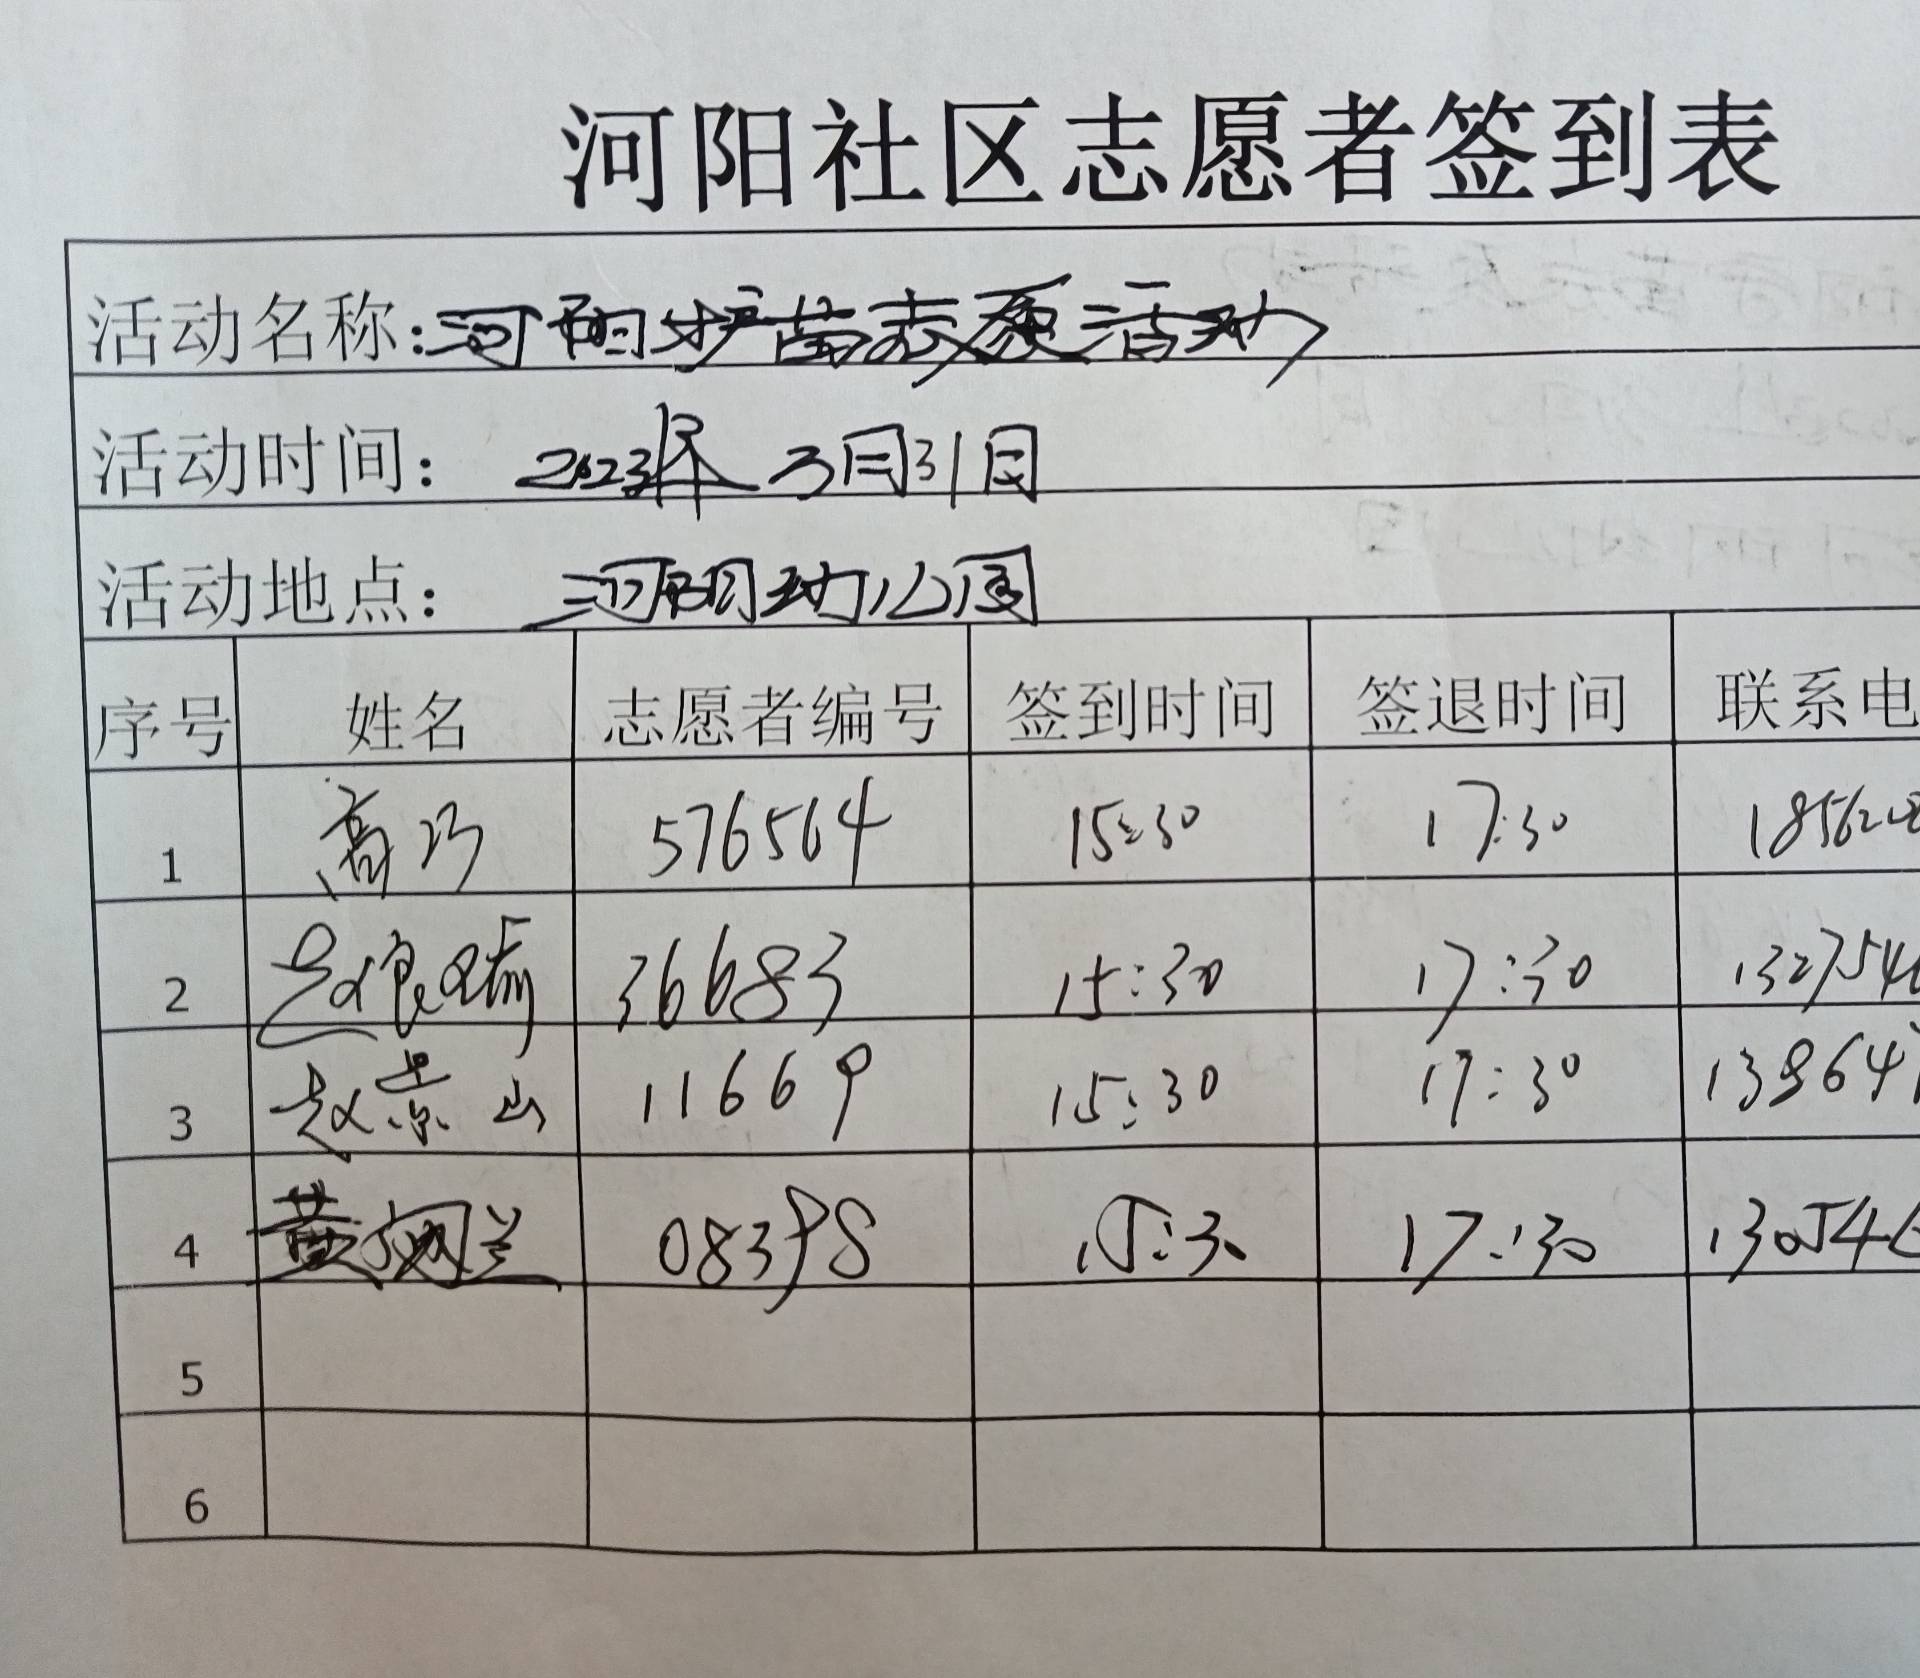 河阳社区志愿者签到表
活动名称:河阳护苗志愿活动
活动时间: 2023年 3月31日
活动地点: 河阳幼儿园
序号 姓名 志愿者编号 签到时间 签退时间 联系电
1 高巧 576564 15:30 17:30 185620
2 赵 36683 15:30 17:30 132754
3 赵景山 11669 15:30 17:30 138647
4 黄 兰 08398 15:30 17:30 130546
5
6